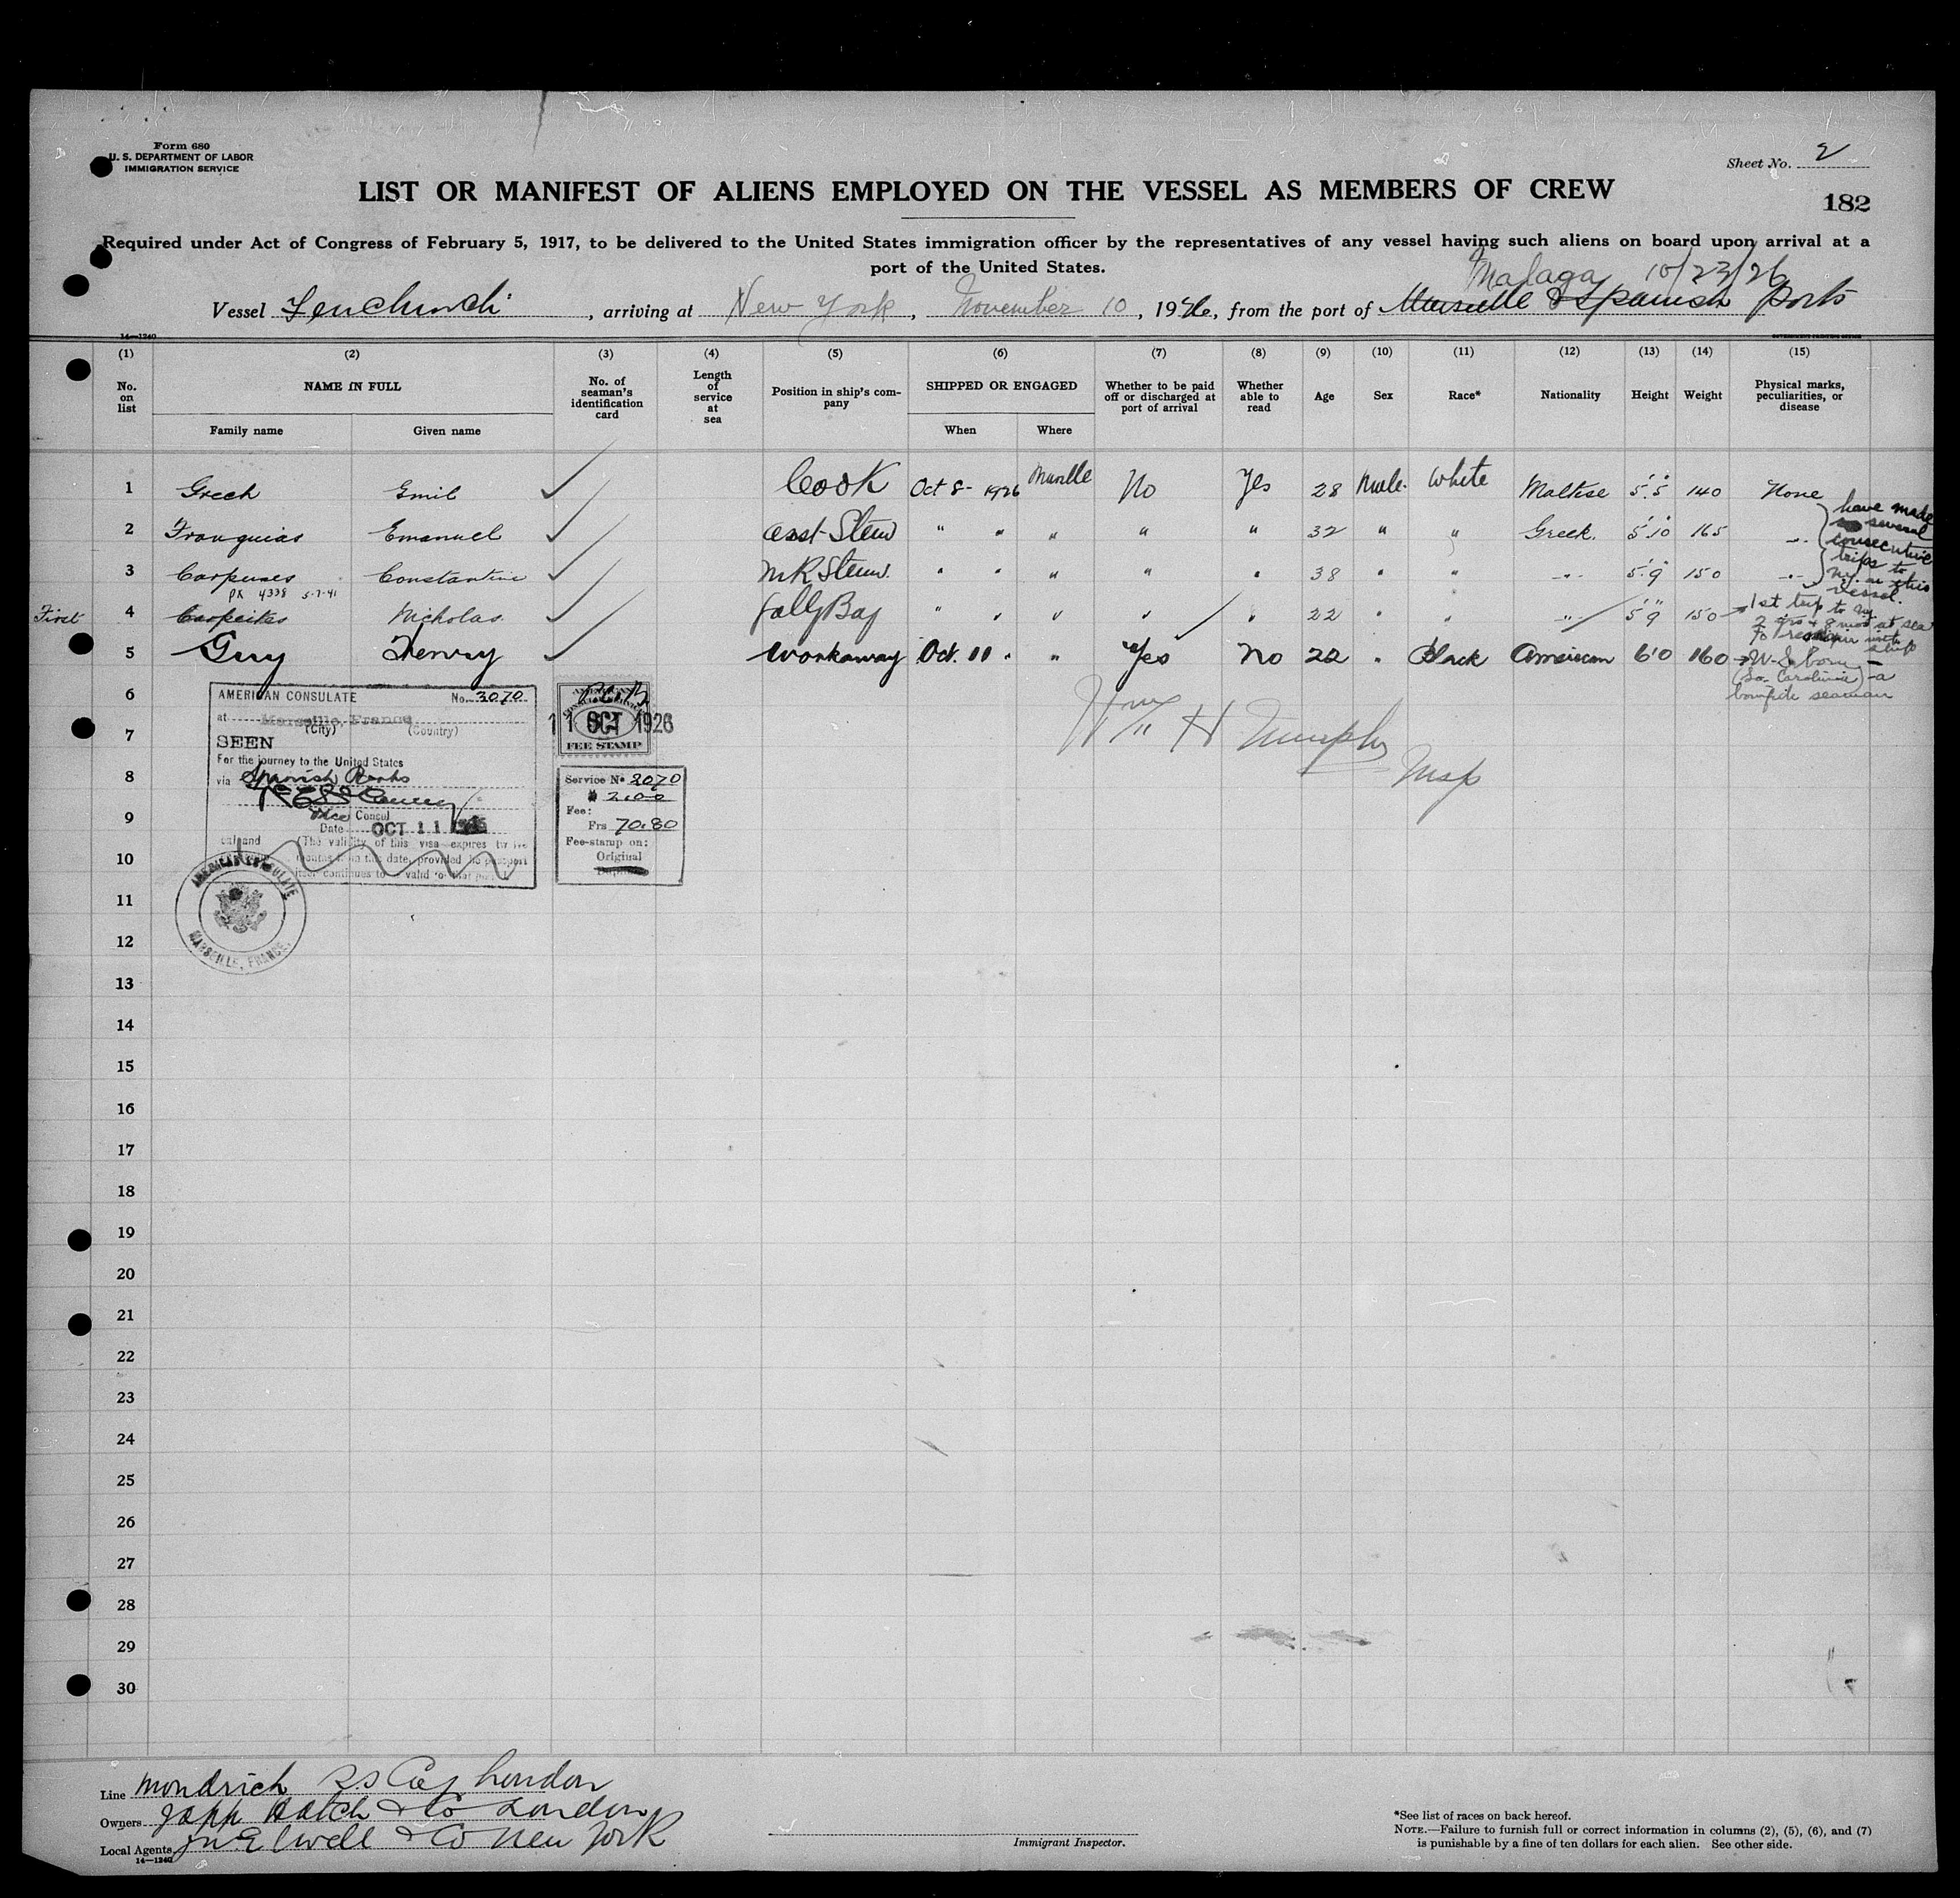 Form 680
U. S. DEPARTMENT OF LABOR
IMMIGRATION SERVICE
Sheet No. 2
LIST OR MANIFEST OF ALIENS EMPLOYED ON THE VESSEL AS MEMBERS OF CREW
182
Required under Act of Congress of February 5, 1917, to be delivered to the United States immigration officer by the representatives of any vessel having such aliens on board upon arrival at a
port of the United States.
Malaga 10/23/26
Vessel Fenchurch, arriving at New York, November 10, 1926, from the port of Marseille & Spanish Ports
14—1240
(1) (2) (3) (4) (5) (6) (7) (8) (9) (10) (11) (12) (13) (14) (15)
No. on list
NAME IN FULL
Family name Given name
No. of seaman's identification card
Length of service at sea
Position in ship's company
SHIPPED OR ENGAGED
When Where
Whether to be paid off or discharged at port of arrival
Whether able to read
Age
Sex
Race*
Nationality
Height
Weight
Physical marks, peculiarities, or disease
1 Grech Emil Cook Oct 8- 1926 No Yes 28 Male. White Maltese 5'.5" 140 None
2 Emanuel asst-Stew " " " " " 32 " " Greek. 5'10 165 -"-
have made several consecutive trips to Ny. on this vessel.
3 Constantine MR Stew. " " " " " 38 " " -"- 5'.9 150 -"-
PX 4338 5-7-41
First 4 Nicholas " " " " " 22 " " -"- 5'9" 150
1st trip to Ny
2 yrs & 8 mos at sea
To with ship
5 Guy Henry Workaway Oct. 11 " " Yes No 22 " Black American 6'0 160
U.S. born -
(So. Carolina) - a
bonafide seaman
6
7
8
9
10
11
12
13
14
15
16
17
18
19
20
21
22
23
24
25
26
27
28
29
30
AMERICAN CONSULATE No. 3070
at Marseille, France
(City) (Country)
SEEN
For the journey to the United States
via Spanish Ports
Vice Consul
Date OCT 11 1926
(The validity of this visa expires
months from this date, provided the passport
continues to valid
AMERICAN CONSULATE
MARSEILLE, FRANCE.
11 OCT 1926
FEE STAMP
Service No 3070
Fee:
Frs 70.80
Fee-stamp on:
Original
Wm H Murphy
Insp
Line Mondrich S.S Coy London
Owners Japp Hatch & Co London
Local Agents Jn Elwell & Co New York
14—1240
Immigrant Inspector.
*See list of races on back hereof.
NOTE.—Failure to furnish full or correct information in columns (2), (5), (6), and (7)
is punishable by a fine of ten dollars for each alien. See other side.